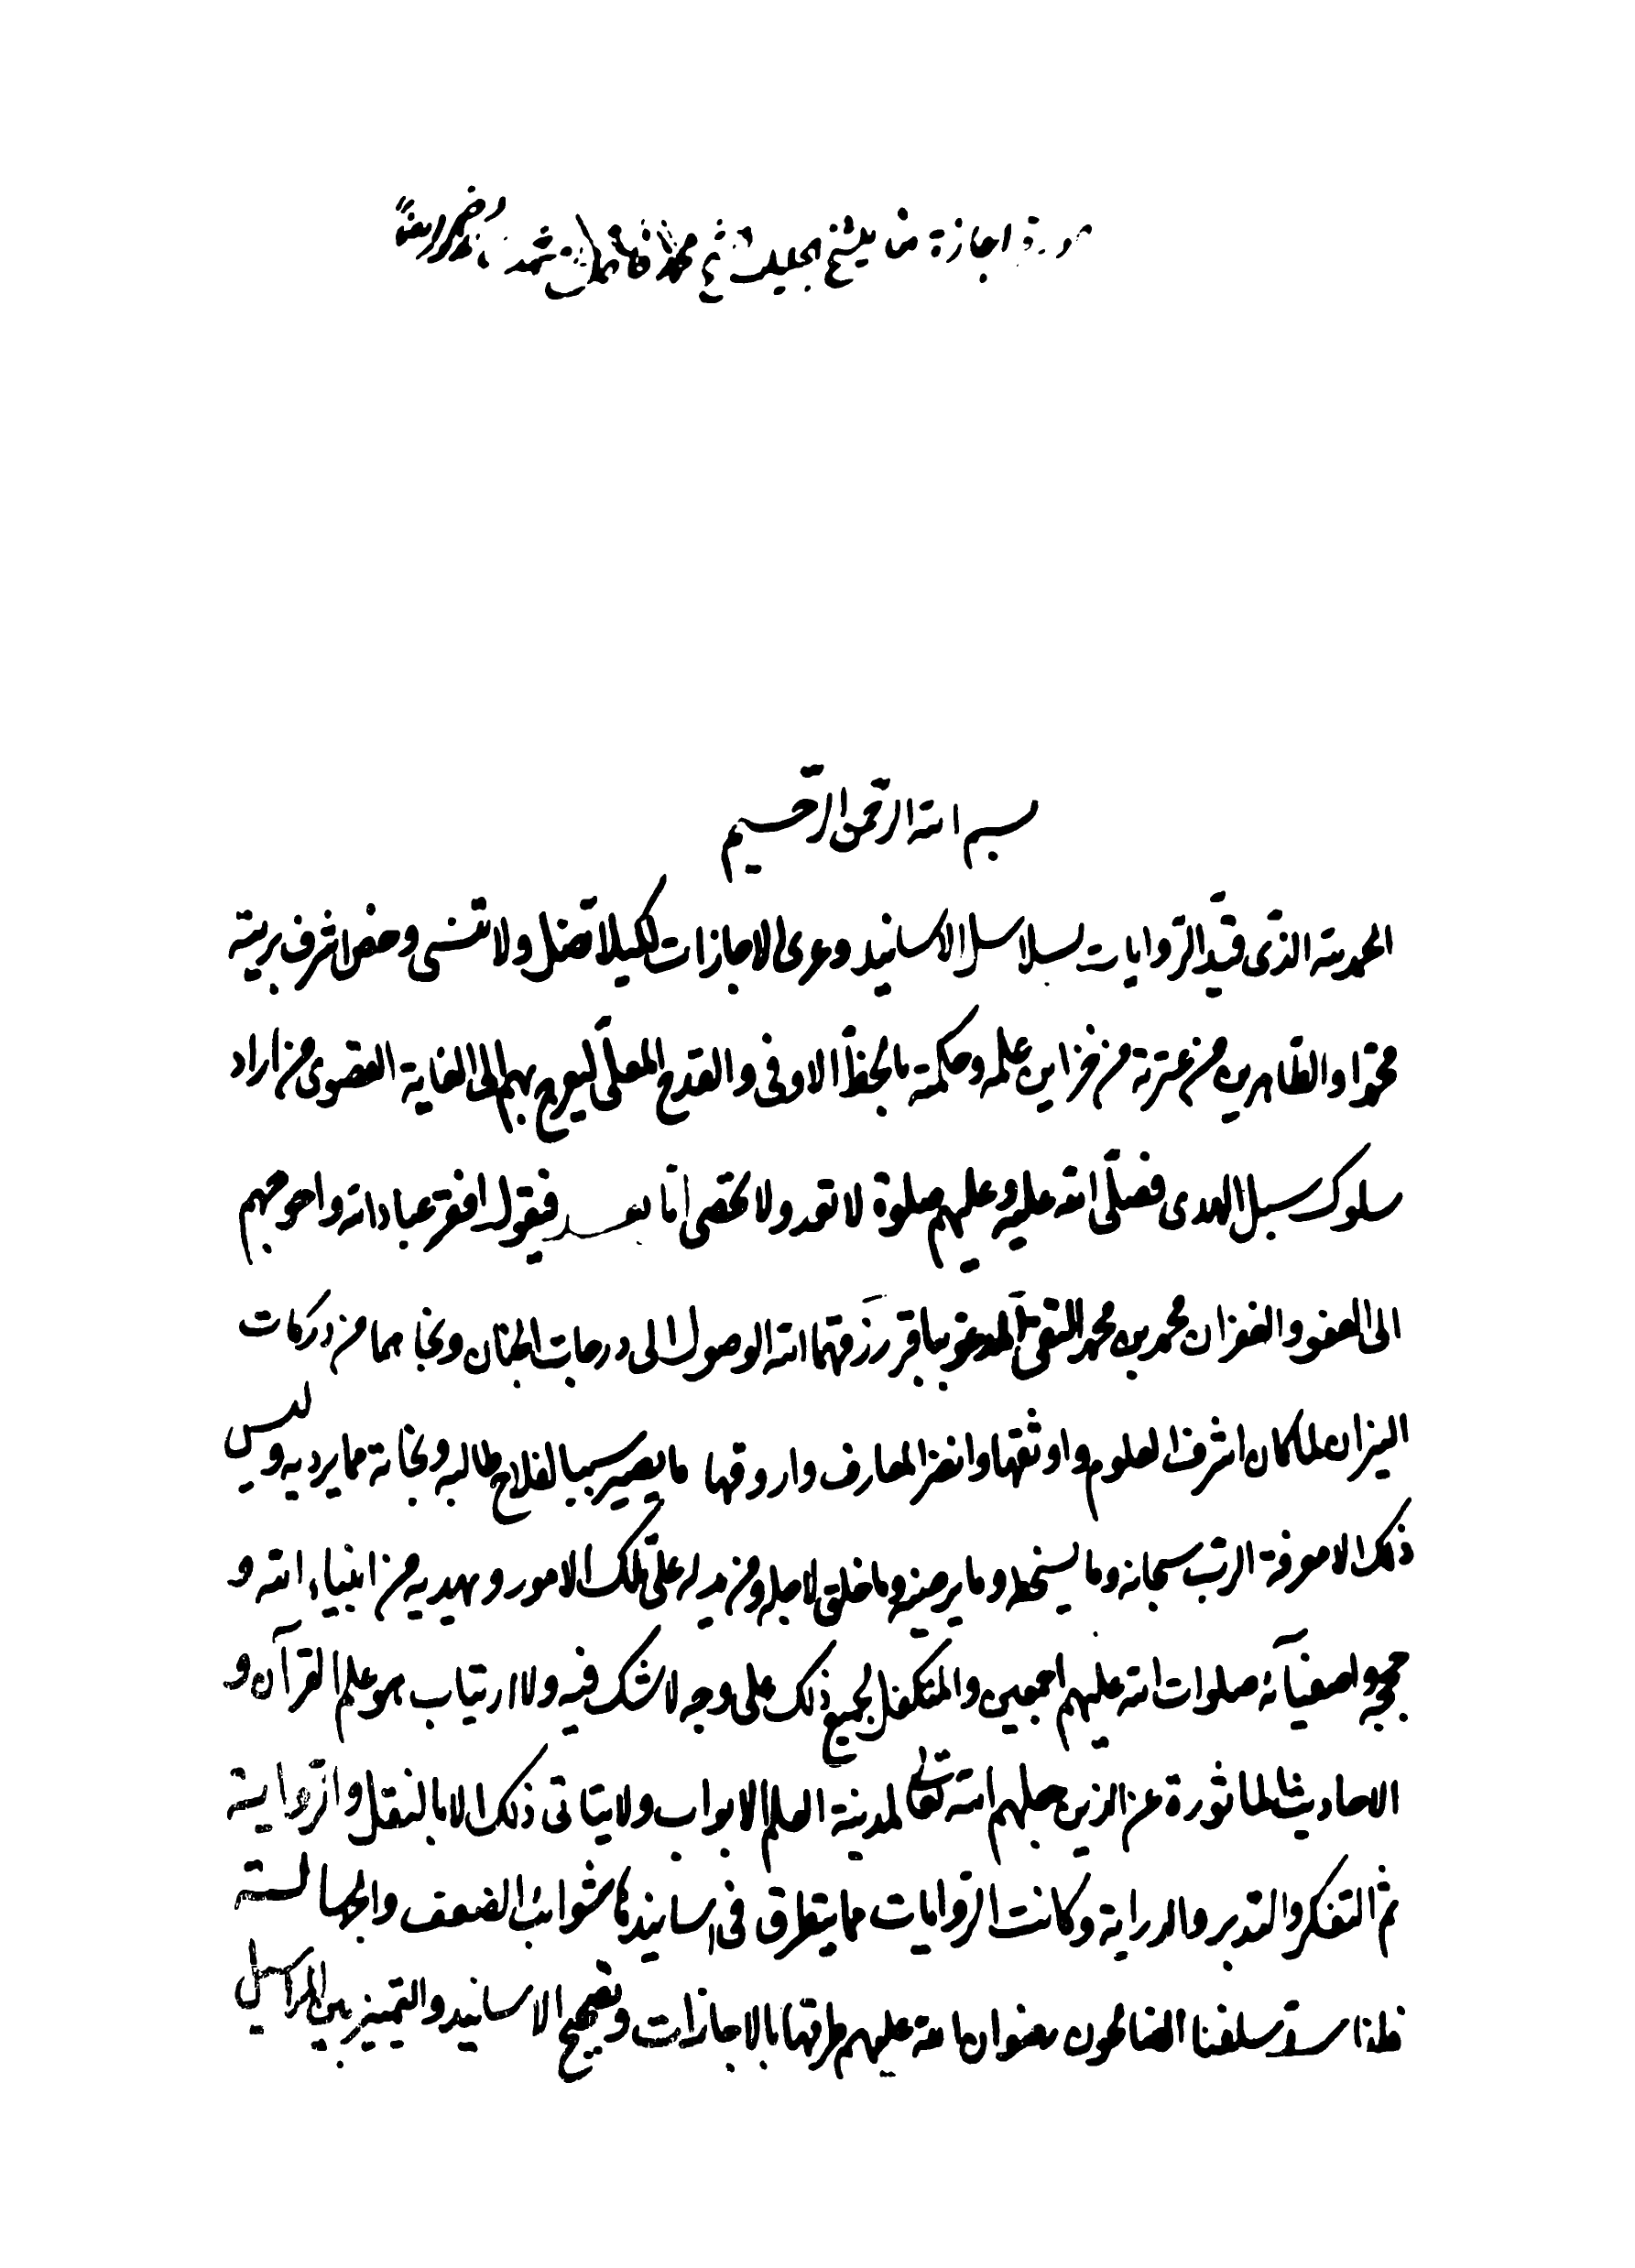 صورة اجازة منا للشيخ الجليل الشيخ محمد فاضل المشهدي
بسم الله الرحمن الرحيم
الحمد لله الذي قيّد الرّوايات بسلاسل الاسانيد وعرى الاجازات لكيلا تضل ولا تنسى وخص اشرف بريته
محمّدا والطّاهرين من عترته من خزاين علمه وحكمته بالحظّ الاوفى والقدح المعلّى ليعرج بهم الى الغاية القصوى من اراد
سلوك سبيل الهدى فصلّى الله عليه وعليهم صلوة لا تعد ولا تحصى امّا بعد فيقول افقر عباد الله واحوجهم
الى العفو والغفران محمد بن محمد التقيّ المدعو بباقر رزقهما الله الوصول الى درجات الجنان ونجاهما من دركات
النيران لما كان اشرف العلوم واوثقها وانفع المعارف واروقها ما يصير سببا لفلاح طالبه ونجاته مما يرديه وليس
ذلك الا معرفة الربّ سبحانه وما يسخطه وما يرضيه وما خلق لاجله ومن يدله على تلك الامور ويهديه من انبياء الله و
حججه واصفيآئه صلوات الله عليهم اجمعين والمتكفل لجميع ذلك على وجه لا شك فيه ولا ارتياب هو علم القرآن و
الاحاديث الماثورة عن الذين جعلهم الله تعالى لمدينة العلم الابواب ولا يتاتى ذلك الا بالنقل والرّواية
ثم التفكر والتدبر والدراية وكانت الرّوايات مما يتطرق في اسانيدها شوائب الضعف والجهالة
فلذا سدّ سلفنا الصالحون رضوان الله عليهم طرقها بالاجازات وتصحيح الاسانيد والتمييز بين المراسيل